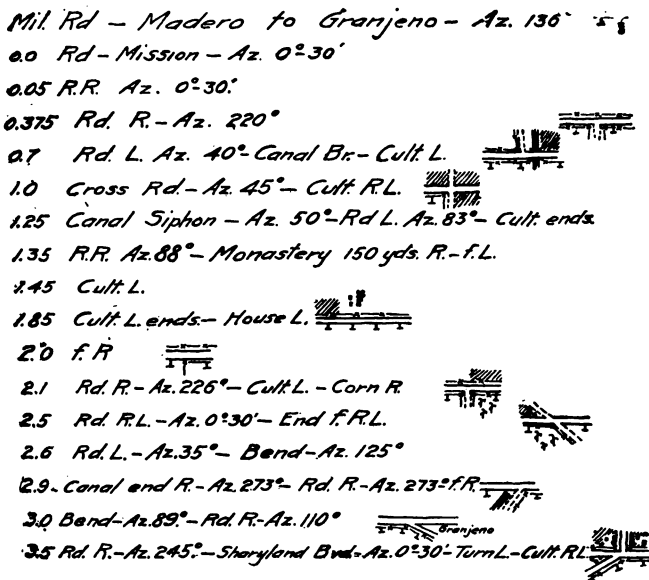 Mil. Rd – Madero to Granjeno – Az. 136°
0.0 Rd – Mission – Az. 0°30'
0.05 R.R. Az. 0°30'.
0.375 Rd. R. – Az. 220°
0.7 Rd. L. Az. 40° – Canal Br. – Cult. L.
1.0 Cross Rd. – Az. 45° – Cult. R.L.
1.25 Canal Siphon – Az. 50° – Rd L. Az. 83° – Cult. ends.
1.35 R.R. Az. 88° – Monastery 150 yds. R. – f. L.
1.45 Cult. L.
1.85 Cult. L. ends. – House L.
2.0 f. R
2.1 Rd. R. – Az. 226° – Cult. L. – Corn R.
2.5 Rd. R.L. – Az. 0°30' – End f. R.L.
2.6 Rd. L. – Az. 35° – Bend – Az. 125°
2.9 – Canal end R. – Az. 273° – Rd. R. – Az. 273° f. R.
3.0 Bend – Az. 89° – Rd. R. – Az. 110° Granjeno
3.5 Rd. R. – Az. 245°. – Sharyland Bvd – Az. 0°30' – Turn L. – Cult. R.L.